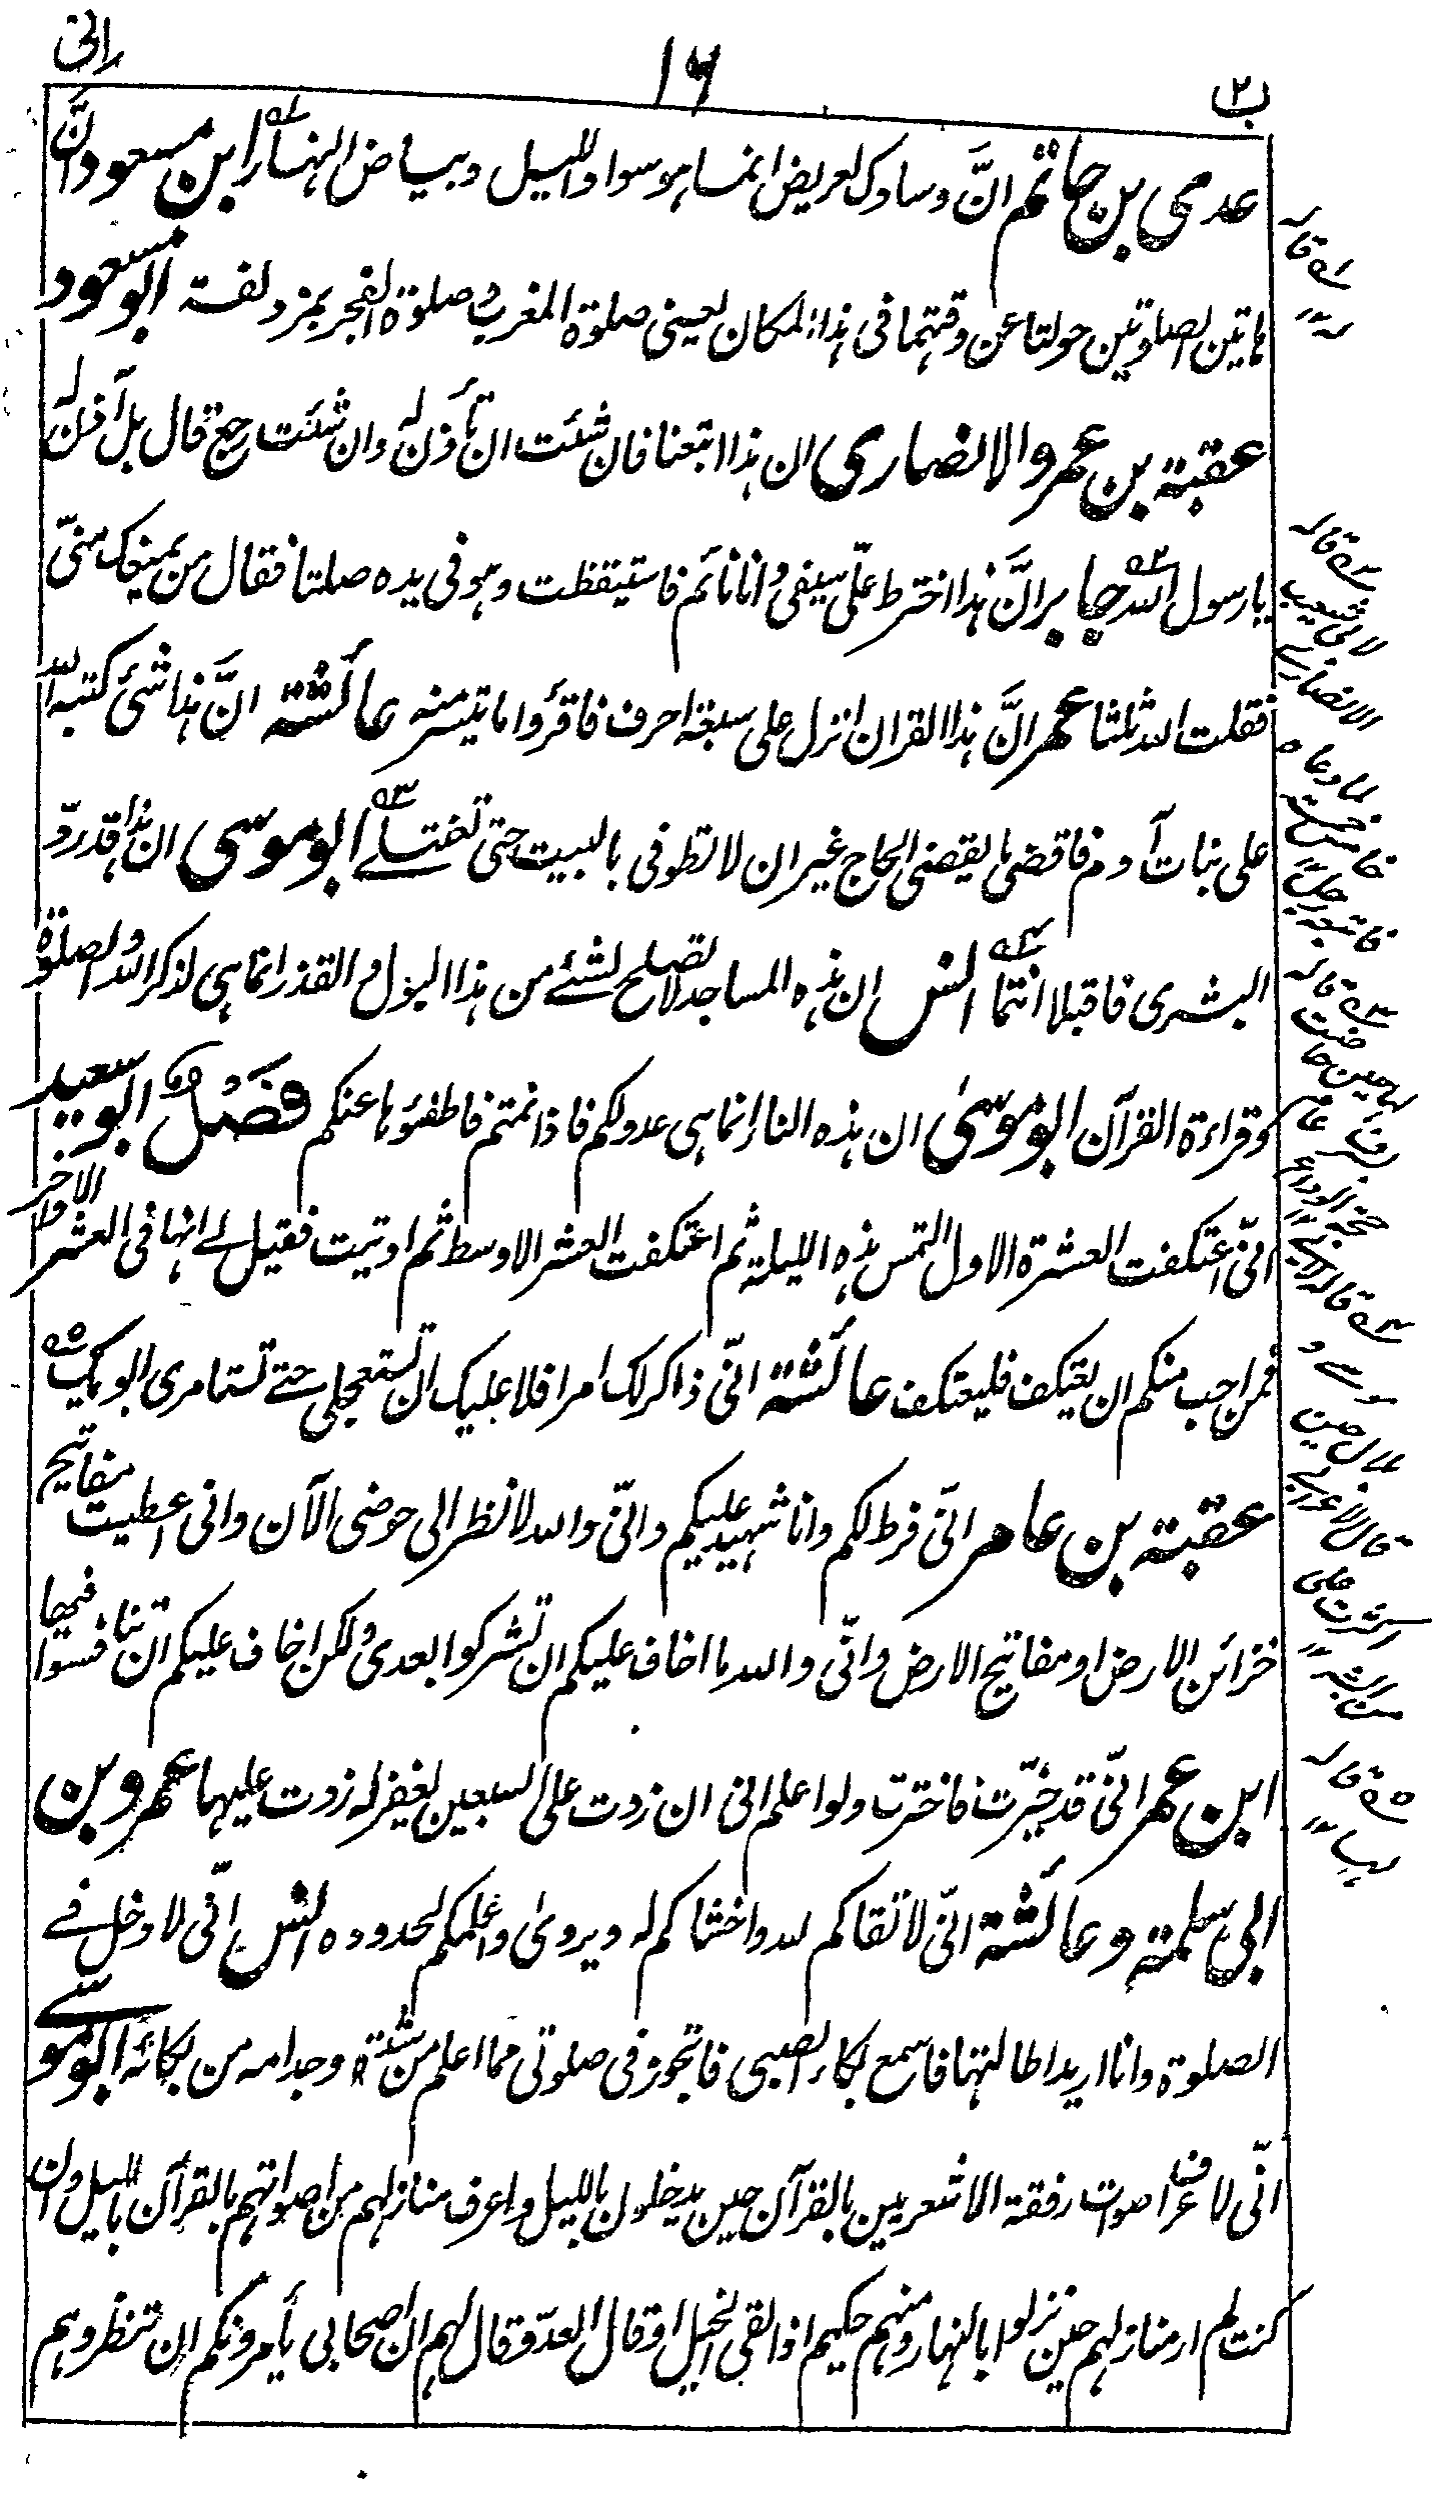 رانی
۱۶
ب۲
عدی بن حاتم انَّ وسادک لعریض انما ہو سواد اللیل و بیاض النہار ابن مسعود انَّ
ہاتین الصلوتین حولتا عن وقتہما فی ہذا المکان یعنی صلوۃ المغرب و صلوۃ الفجر بمزدلفۃ ابو مسعود
عقبۃ بن عمرو الانصاری ان ہذا اتبعنا فان شئت ان تأذن لہ وان شئت رجع قال بل آذن لہ
یا رسول اللہ جابر انَّ ہذا اخترط علیّ سیفی و انا نائم فاستیقظت و ہو فی یدہ صلتا فقال من یمنعک منیّ
فقلت اللہ ثلثا عمر انَّ ہذا القران انزل علی سبعۃ احرف فاقرؤا ما تیسر منہ عائشۃ انَّ ہذا شئ کتبہ اللہ
علی بنات آدم فاقضی ما یقضی الحاج غیر ان لا تطوفی بالبیت حتی تغتسلے ابو موسی ان ہذا قد ردّ
البشری فاقبلا انتما انس ان ہذہ المساجد لا تصلح لشئے من ہذا البول و القذر انما ہی لذکر اللہ و الصلوۃ
و قراءۃ القرآن ابو موسیٰ ان ہذہ النار انما ہی عدو لکم فاذا نمتم فاطفئوہا عنکم فصل ابو سعید
انیّ اعتکفت العشرۃ الاول التمس ہذہ اللیلۃ ثم اعتکفت العشر الاوسط ثم اوتیت فقیل لے انہا فی العشر الاواخر
فمن احب منکم ان یعتکف فلیعتکف عائشۃ انیّ ذاکر لک امرا فلا علیک ان تستعجلی حتے تستامری ابویک
عقبۃ بن عامر انیّ فرط لکم و انا شہید علیکم و انیّ و اللہ لانظر الی حوضی الآن و انی اعطیت مفاتیح
خزائن الارض او مفاتیح الارض و انیّ و اللہ ما اخاف علیکم ان تشرکوا بعدی و لکن اخاف علیکم ان تنافسوا فیہا
ابن عمر انیّ قد خیّرت فاخترت ولو اعلم انی ان زدت علی السبعین یغفر لہ زدت علیہا عمرو بن
ابی سلمۃ و عائشۃ انیّ لاتقاکم للہ و اخشاکم لہ و یرویٰ و اعلمکم بحدودہ انس انیّ لادخل فے
الصلوۃ و انا ارید اطالتہا فاسمع بکاء الصبی فاتجوز فی صلوتی مما اعلم من شدۃ وجد امہ من بکائہ ابو موسے
انیّ لاعرف اصوات رفقۃ الاشعریین بالقرآن حین یدخلون باللیل و اعرف منازلہم من اصواتہم بالقرآن باللیل و ان
کنت لم ار منازلہم حین نزلوا بالنہار و منہم حکیم اذا لقی الخیل او قال العدوّ قال لہم ان اصحابی یأمرونکم ان تنظروہم
۱ قالہ
لہ ۱۲
۲ قالہ
لابی شعیب
الانصاری
لما دعاہ
خامس خمسۃ
فاتبعہ رجل ۱۲
۳ قالہ
لہا حین حا
ضت
بسرف عام
حجۃ الوداع ۱۲
۴ قالہ لابی
موسے و
بلال حین
قال الاعرابی
اکثرت علی
من ابشر ۱۲
۵ قالہ
لہا ۱۲